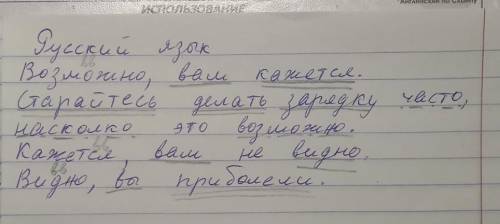 ИСПОЛЬЗОВАНИЕ
Русский язык
Возможно, вам кажется.
Старайтесь делать зарядку часто,
насколко это возможно.
Кажется, вам не видно.
Видно, вы приболели.